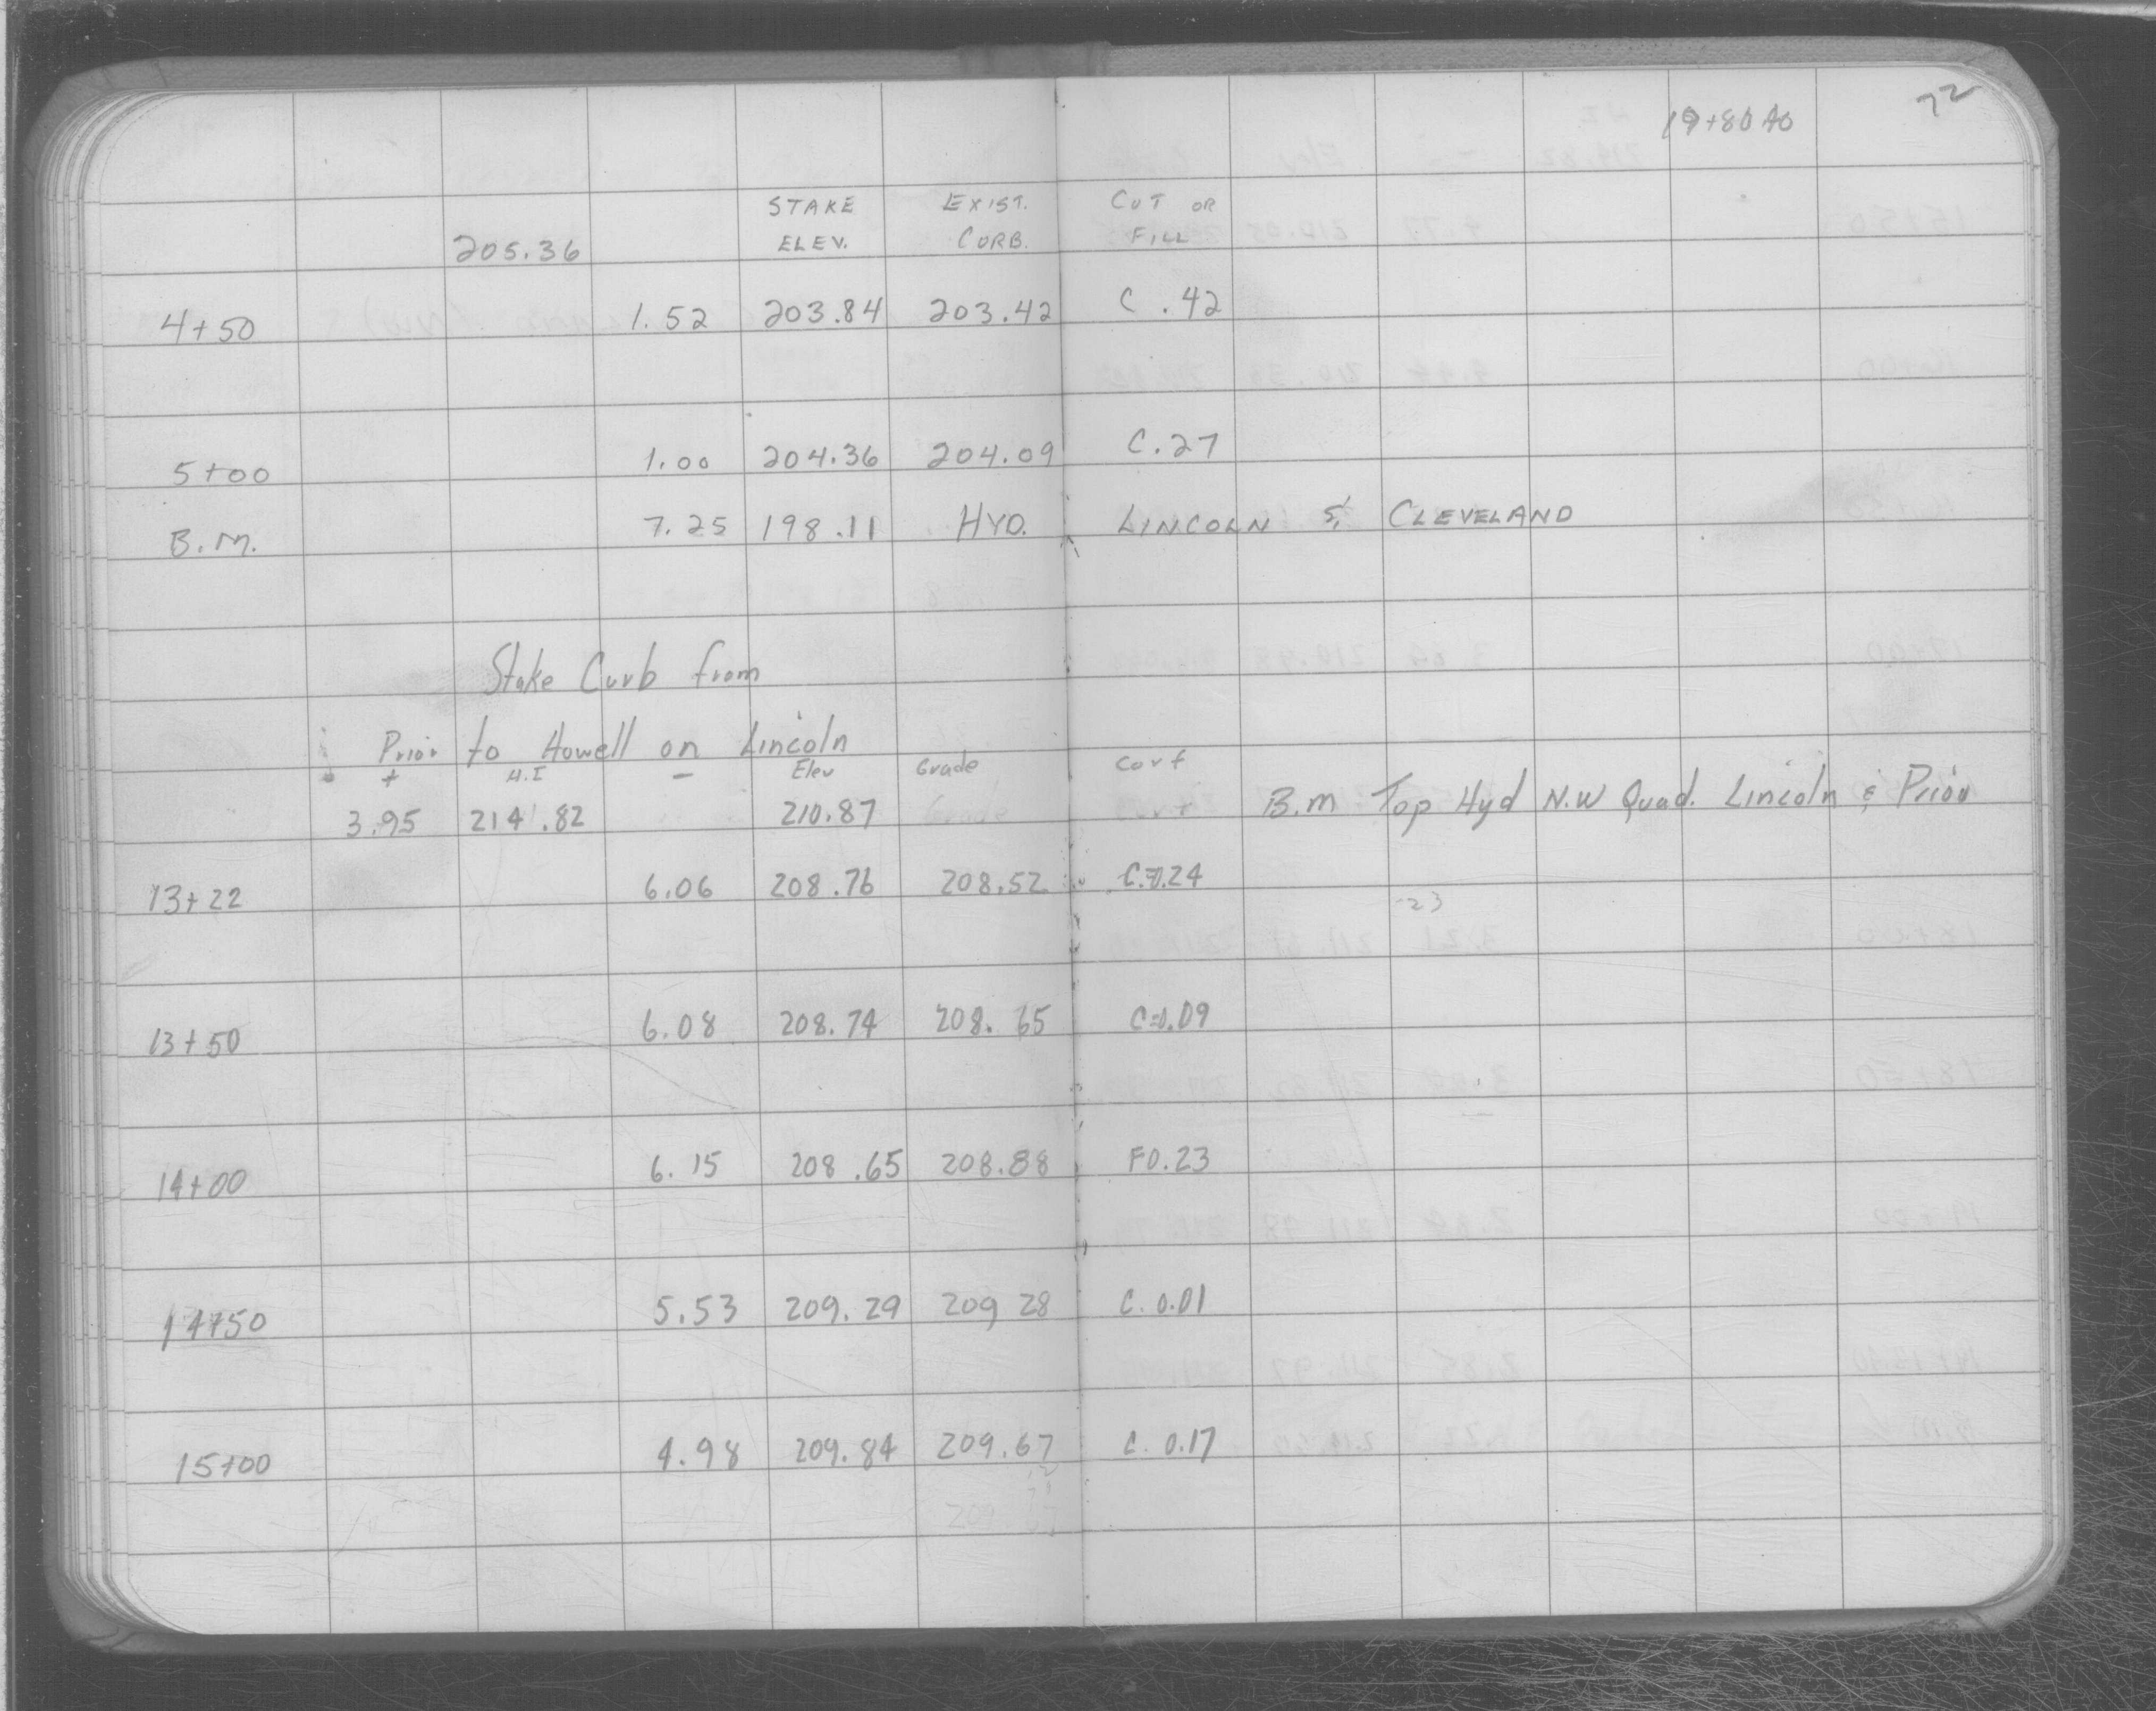 72
205.36 STAKE ELEV. EXIST. CURB. CUT OR FILL
4+50 1.52 203.84 203.42 C .42
5+00 1.00 204.36 204.09 C.27
B.M. 7.25 198.11 HYD. LINCOLN & CLEVELAND
Stake Curb from
Prior to Howell on Lincoln
+ H.I - Elev Grade Corf
3.95 214.82 210.87 B.m Top Hyd N.W Quad. Lincoln & Prior
13+22 6.06 208.76 208.52 C=0.24
23
13+50 6.08 208.74 208.65 C=0.09
14+00 6.15 208.65 208.88 F0.23
14+50 5.53 209.29 209 28 C. 0.01
15+00 4.98 209.84 209.67 C. 0.17